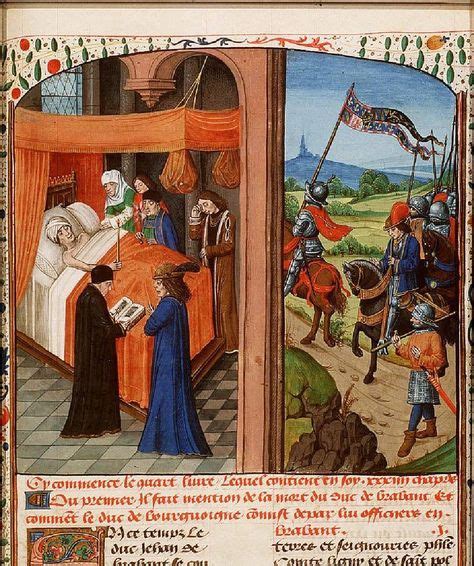 Cy commence le quart livre Lequel contient en soy .xxxiii chapres
Du premier Il fait mention de la mort du Duc de brabant Et
comment le duc de bourgoingne commist depar luy officiers en
brabant. .I.
En ce temps Le
duc Jehan de
brabant le cou
terres et seignouries phle
Conte ligny et de sait pol